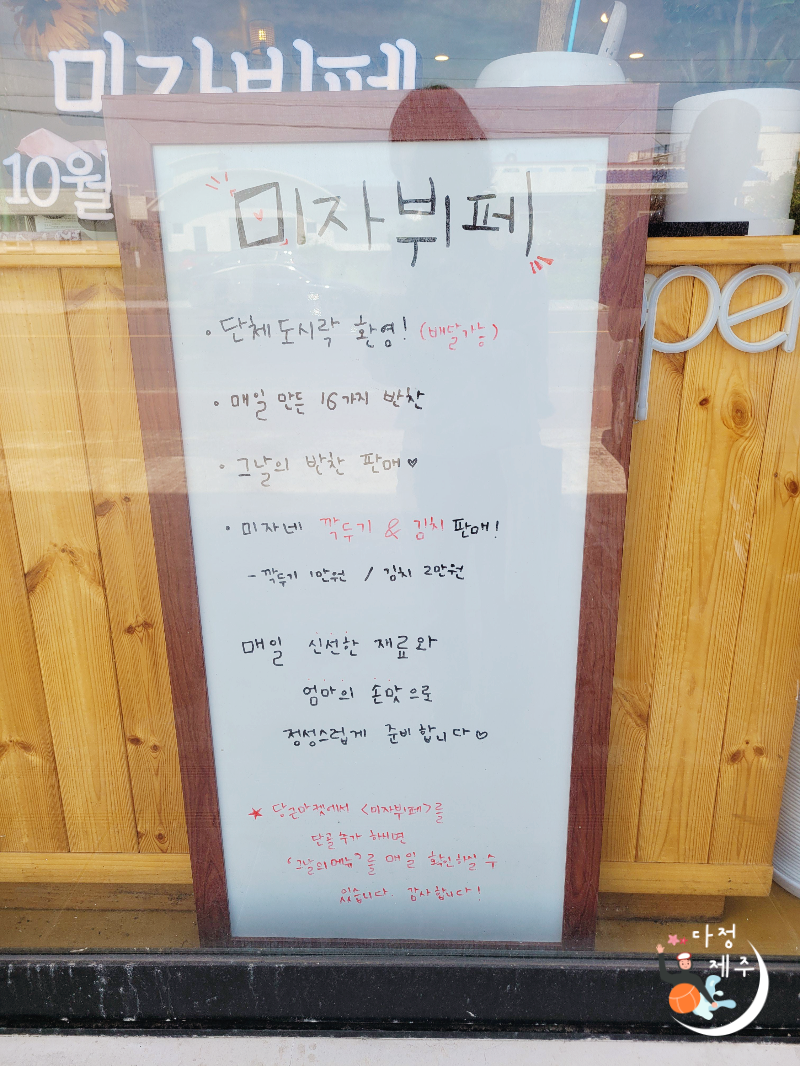 미자뷔페
10월
미자뷔페
pe
• 단체도시락 환영! (배달가능)
• 매일 만든 16가지 반찬
• 그날의 반찬 판매♥
• 미자네 깍두기 & 김치 판매!
- 깍두기 1만원 / 김치 2만원
매일 신선한 재료와
엄마의 손맛으로
정성스럽게 준비합니다♡
★ 당근마켓에서 <미자뷔페>를
단골추가 하시면
'그날의메뉴'를 매일 확인하실 수
있습니다. 감사합니다!
다정
제주